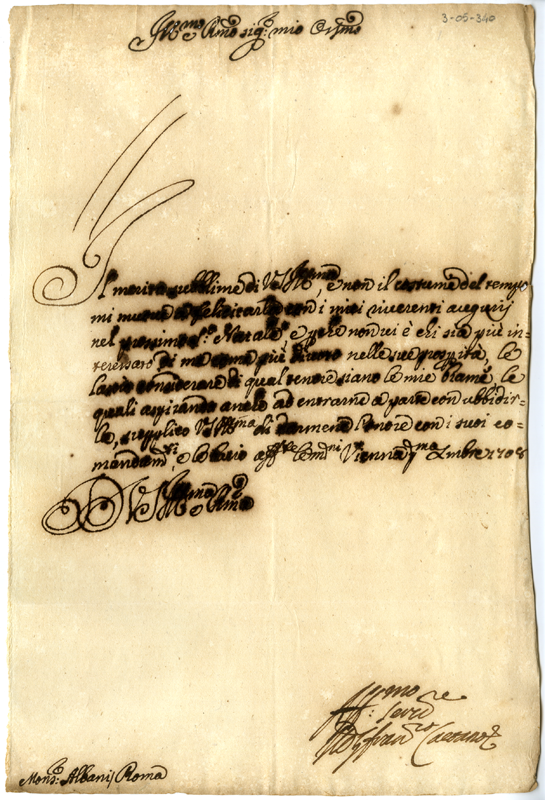 3-05-340
Ill.mo e R.mo sig.r mio Oss.mo
Il merito sublime di V.S. Ill.ma, e non il costume del tempo
mi muove a felicitarla con i miei riverenti augurij
nel prossimo S.o Natale, e perche non vi è chi sia più in=
teressato di me come più divoto nelle sue prosperità, le
lascio considerare di qual tenore siano le mie brame, le
quali aspirando anche ad entrarne a parte con ubbidir=
la, supplico V.S. Ill.ma di darmene l'onore con i suoi co=
mandam.ti, e le bacio aff.te le m.ni Vienna p.ma Xmbre 1708
D V.S. Ill.ma e R.ma
Aff.mo
Serv.re
Fran.co Caetano
Mons.r Albani / Roma